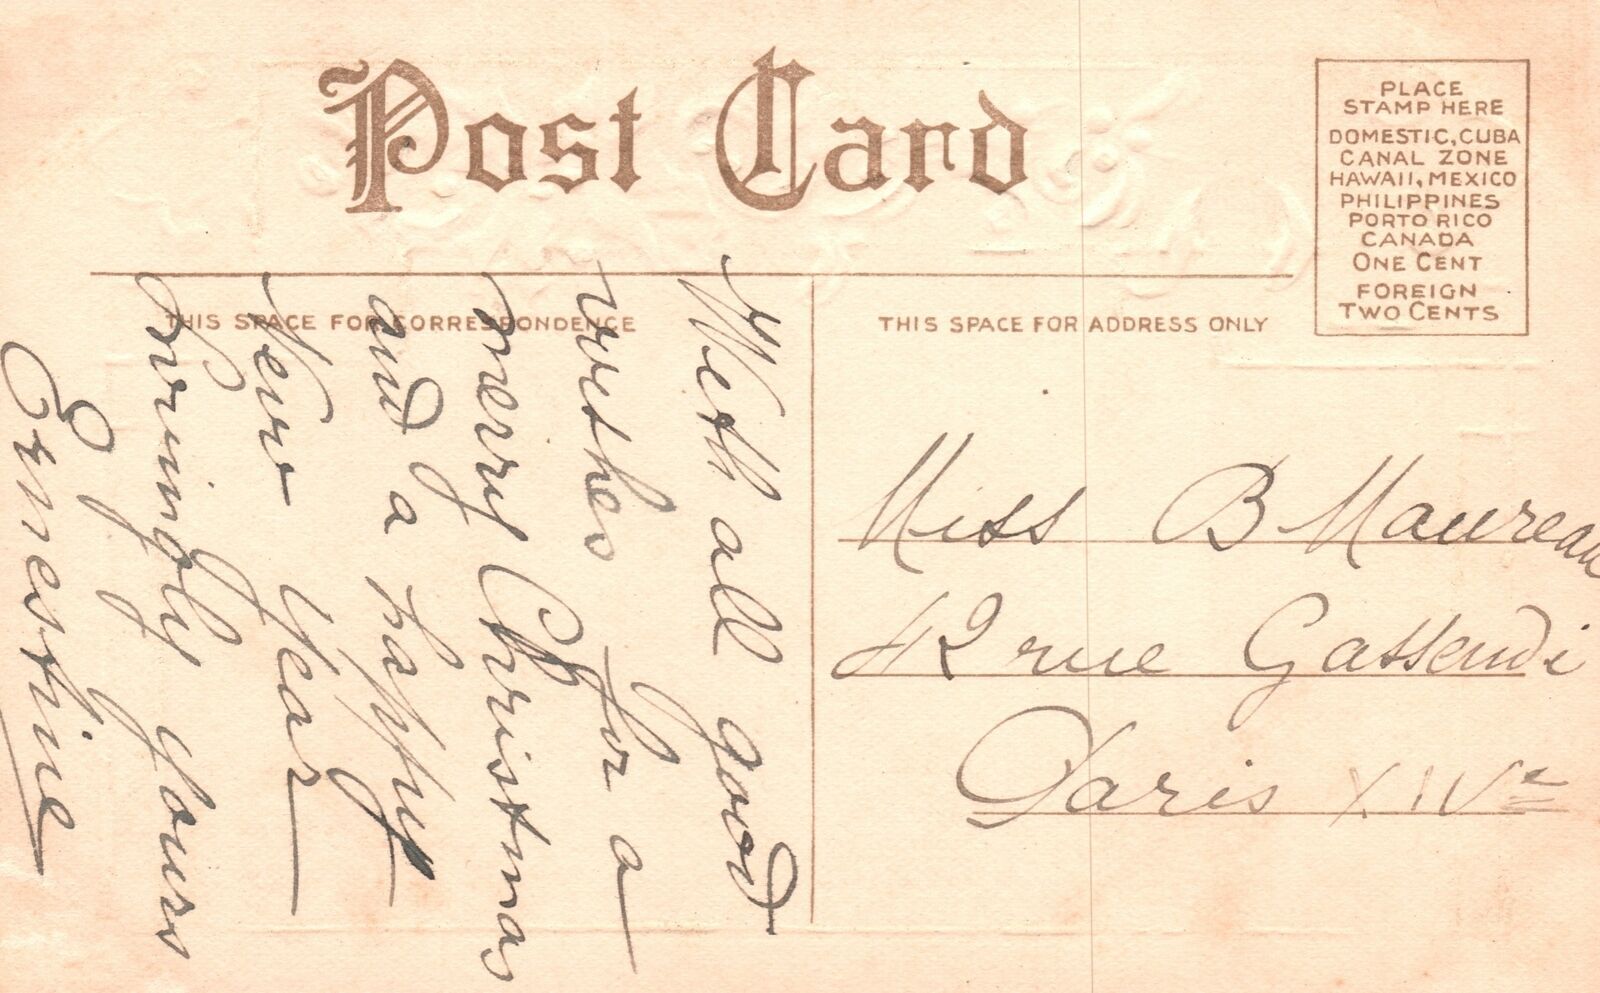 Post Card
PLACE
STAMP HERE
DOMESTIC, CUBA
CANAL ZONE
HAWAII, MEXICO
PHILIPPINES
PORTO RICO
CANADA
ONE CENT
FOREIGN
TWO CENTS
THIS SPACE FOR CORRESPONDENCE
THIS SPACE FOR ADDRESS ONLY
With all good
wishes for a
merry Christmas
and a happy
New Year
lovingly yours
Ernestine
Miss B Maureau
42 rue Gassendi
Paris XIVe